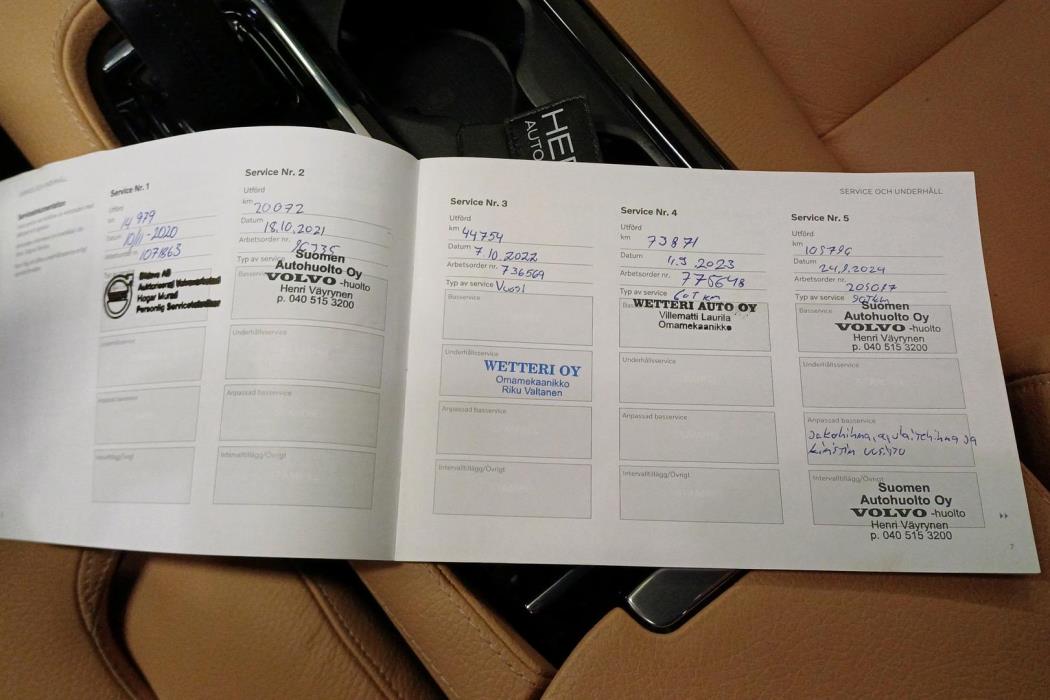 Service Nr. 1
Utförd
km 14 979
Datum 10/11-2020
1071863
Bildeve AB
Auktoriserad Volvoverkstad
Hogar Murad
Personlig Servicetekniker
Anpassad basservice
Intervalltillägg/Övrigt
Service Nr. 2
Utförd
km 20072
Datum 18.10.2021
Arbetsorder nr.
Typ av service
Basservice
Suomen
Autohuolto Oy
VOLVO -huolto
Henri Väyrynen
p. 040 515 3200
Underhållsservice
Anpassad basservice
Intervalltillägg/Övrigt
SERVICE OCH UNDERHÅLL
Service Nr. 3
Utförd
km 44754
Datum 7.10.2022
Arbetsorder nr. 736569
Typ av service Vuosi
Basservice
Underhållsservice
WETTERI OY
Omamekaanikko
Riku Valtanen
Anpassad basservice
Intervalltillägg/Övrigt
Service Nr. 4
Utförd
km 73871
Datum 1.9 2023
Arbetsorder nr. 775648
Typ av service 60T km
WETTERI AUTO OY
Villematti Laurila
Omamekaanikko
Underhållsservice
Anpassad basservice
Intervalltillägg/Övrigt
Service Nr. 5
Utförd
km 105796
Datum 24.9.2024
Arbetsorder nr. 205017
Typ av service 90Tkm
Basservice
Suomen
Autohuolto Oy
VOLVO -huolto
Henri Väyrynen
p. 040 515 3200
Underhållsservice
Anpassad basservice
Jakohihna, apulaitehihna ja
kiristin uusittu
Intervalltillägg/Övrigt
Suomen
Autohuolto Oy
VOLVO -huolto
Henri Väyrynen
p. 040 515 3200
7